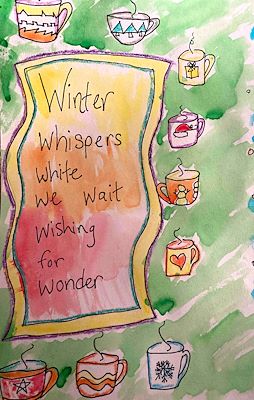 Winter
Whispers
White
We Wait
Wishing
for
Wonder